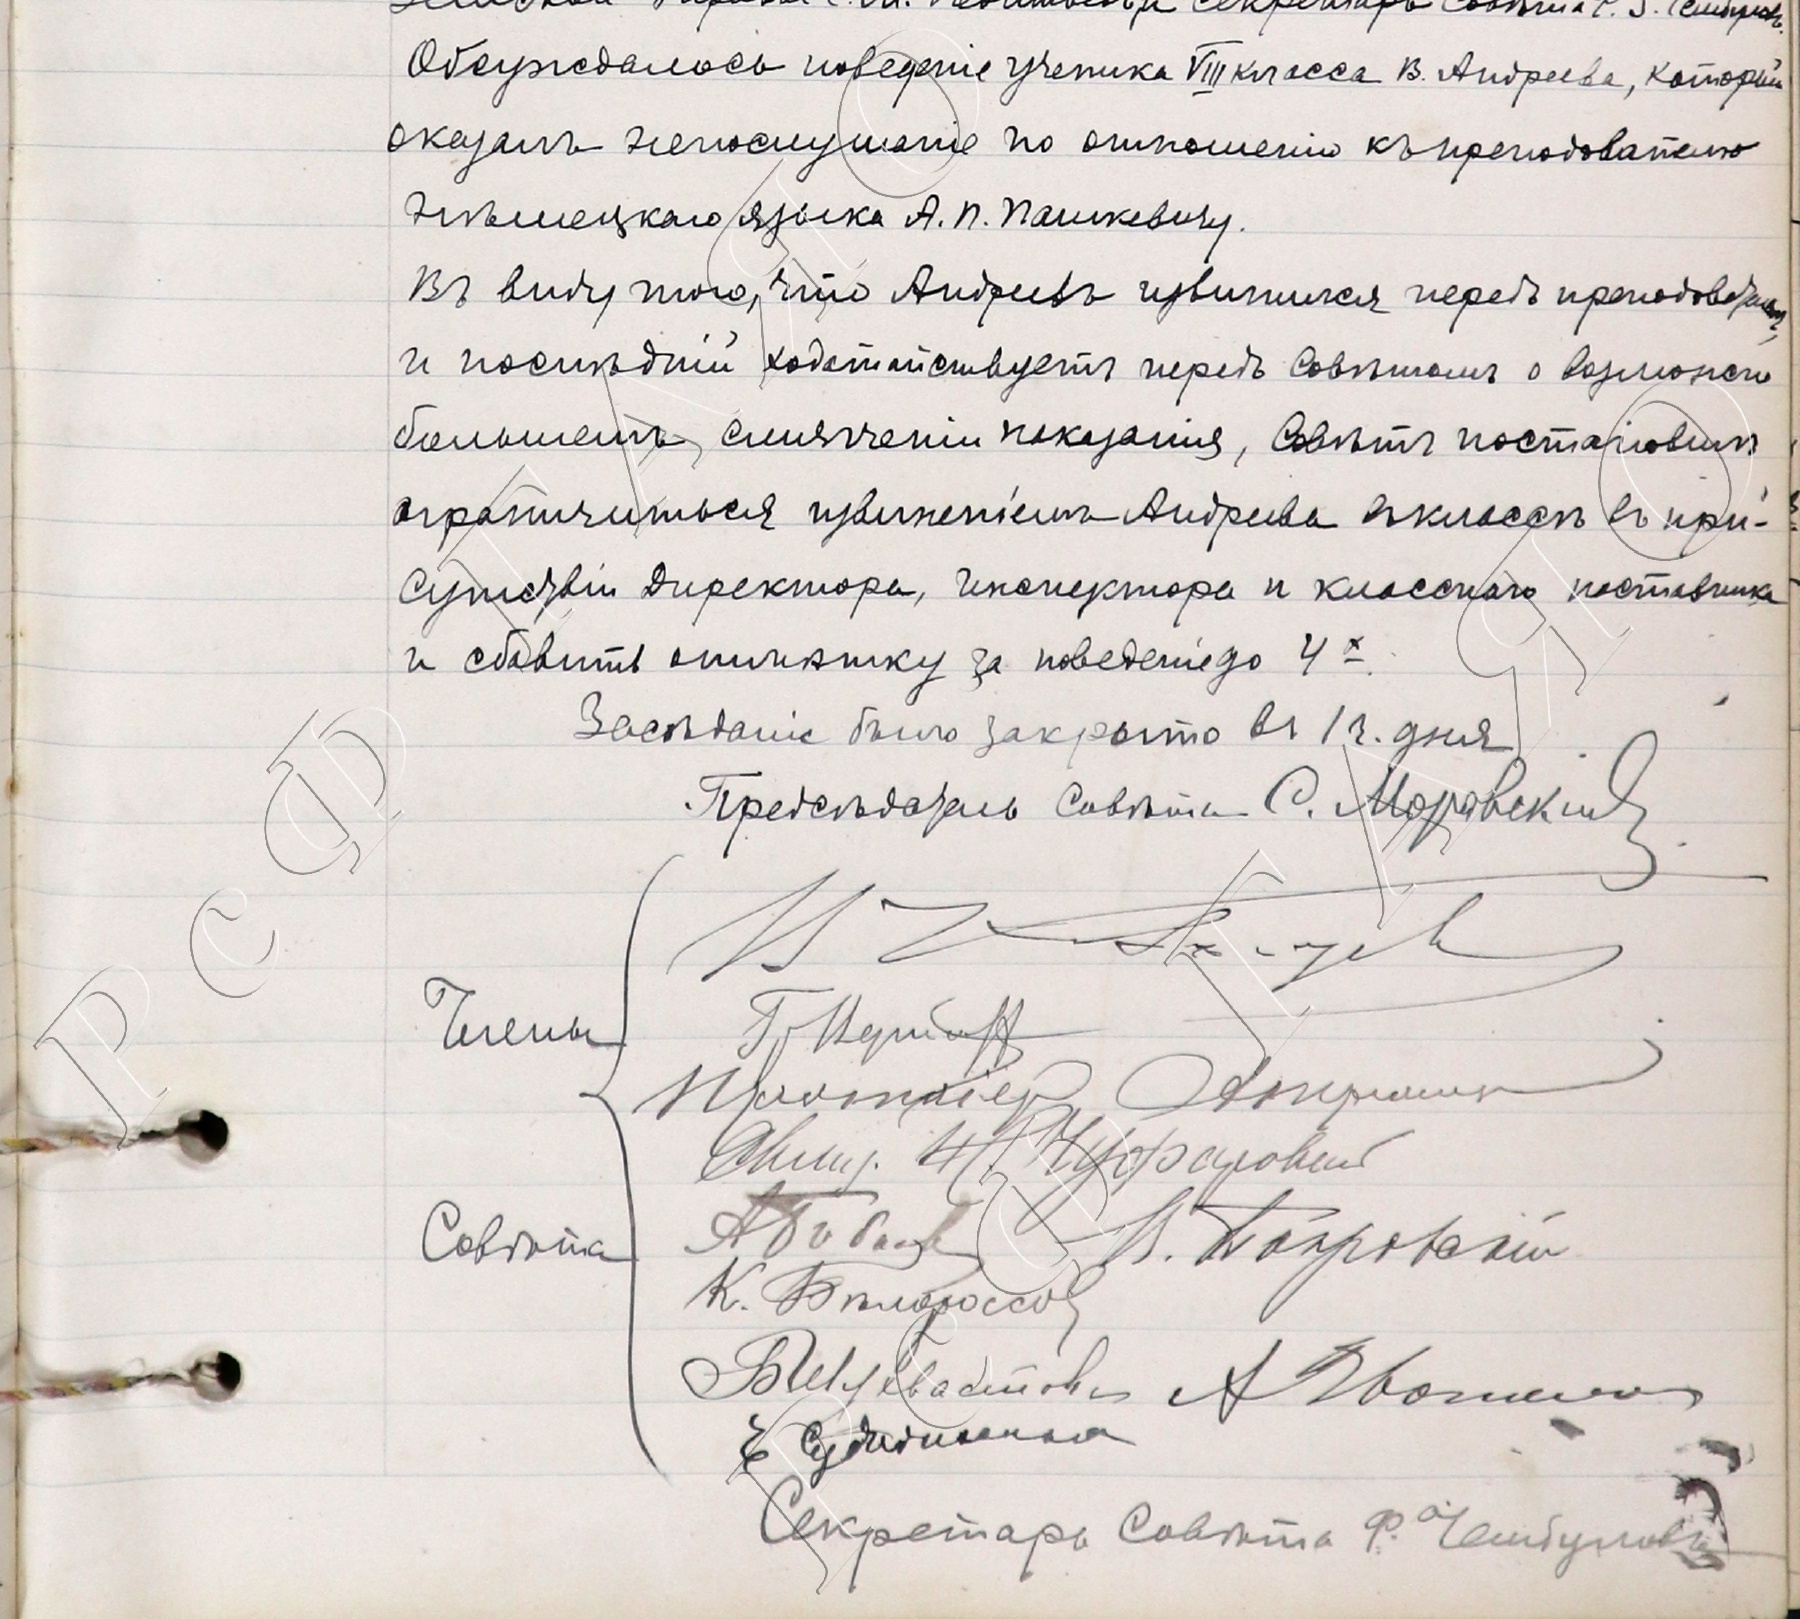 Обсуждалось поведенiе ученика VIII класса В. Андреева, который
оказалъ непослушанiе по отношенiю къ преподователю
нѣмецкаго языка А. П. Пашкевичу.
Въ виду того, что Андреевъ извинился передъ преподователемъ,
и послѣднiй ходатайствуетъ передъ Совѣтомъ о возможно
большемъ смягченiи наказанiя, Совѣтъ постановилъ
ограничиться извиненiемъ Андреева въ классѣ въ при-
сутствiи Директора, Инспектора и класснаго наставника
и сбавить отмѣтку за поведенiе до 4х.
Засѣданiе было закрыто въ 1 ч. дня
Предсѣдатель Совѣта С. Моравскiй
Члены
Протоiерей
Свящ.
Совѣта
В. Покровскiй
К. Бѣлороссовъ
Секретарь Совѣта Ф. Чембуловъ
РСФ ГАЯО
РСФ ГАЯО